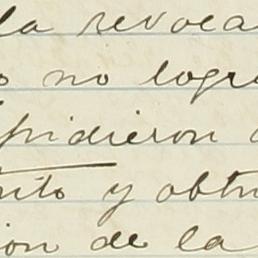 la revoca
o no logr
pidieron
rito y obtu
ion de la